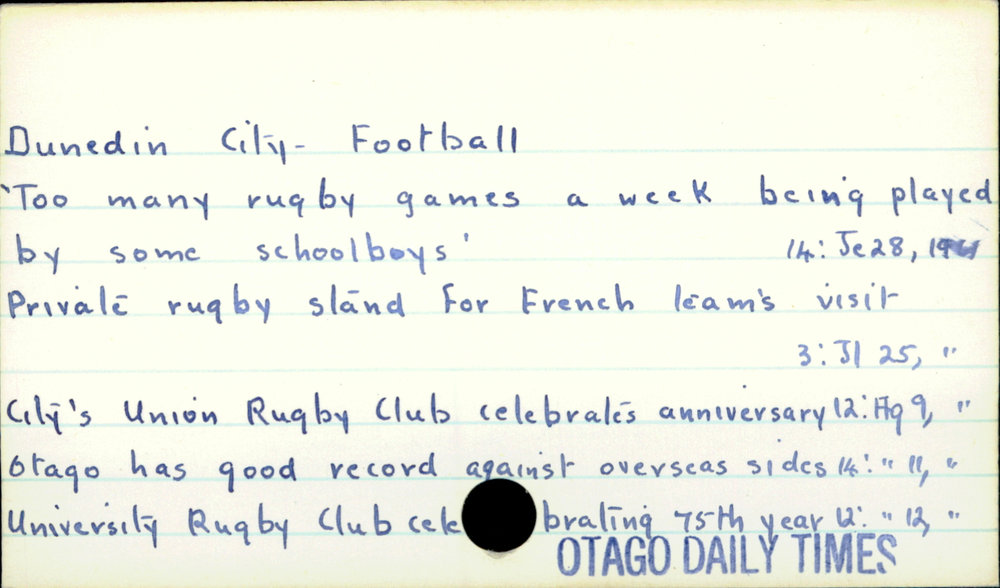 Dunedin City - Football
'Too many rugby games a week being played
by some schoolboys' 14: Je 28, 1961
Private rugby stand for French team's visit
3: Jl 25, "
City's Union Rugby Club celebrates anniversary 12: Ag 9, "
Otago has good record against overseas sides 14: " 11, "
University Rugby Club cele brating 75th year 12: " 12, "
OTAGO DAILY TIMES